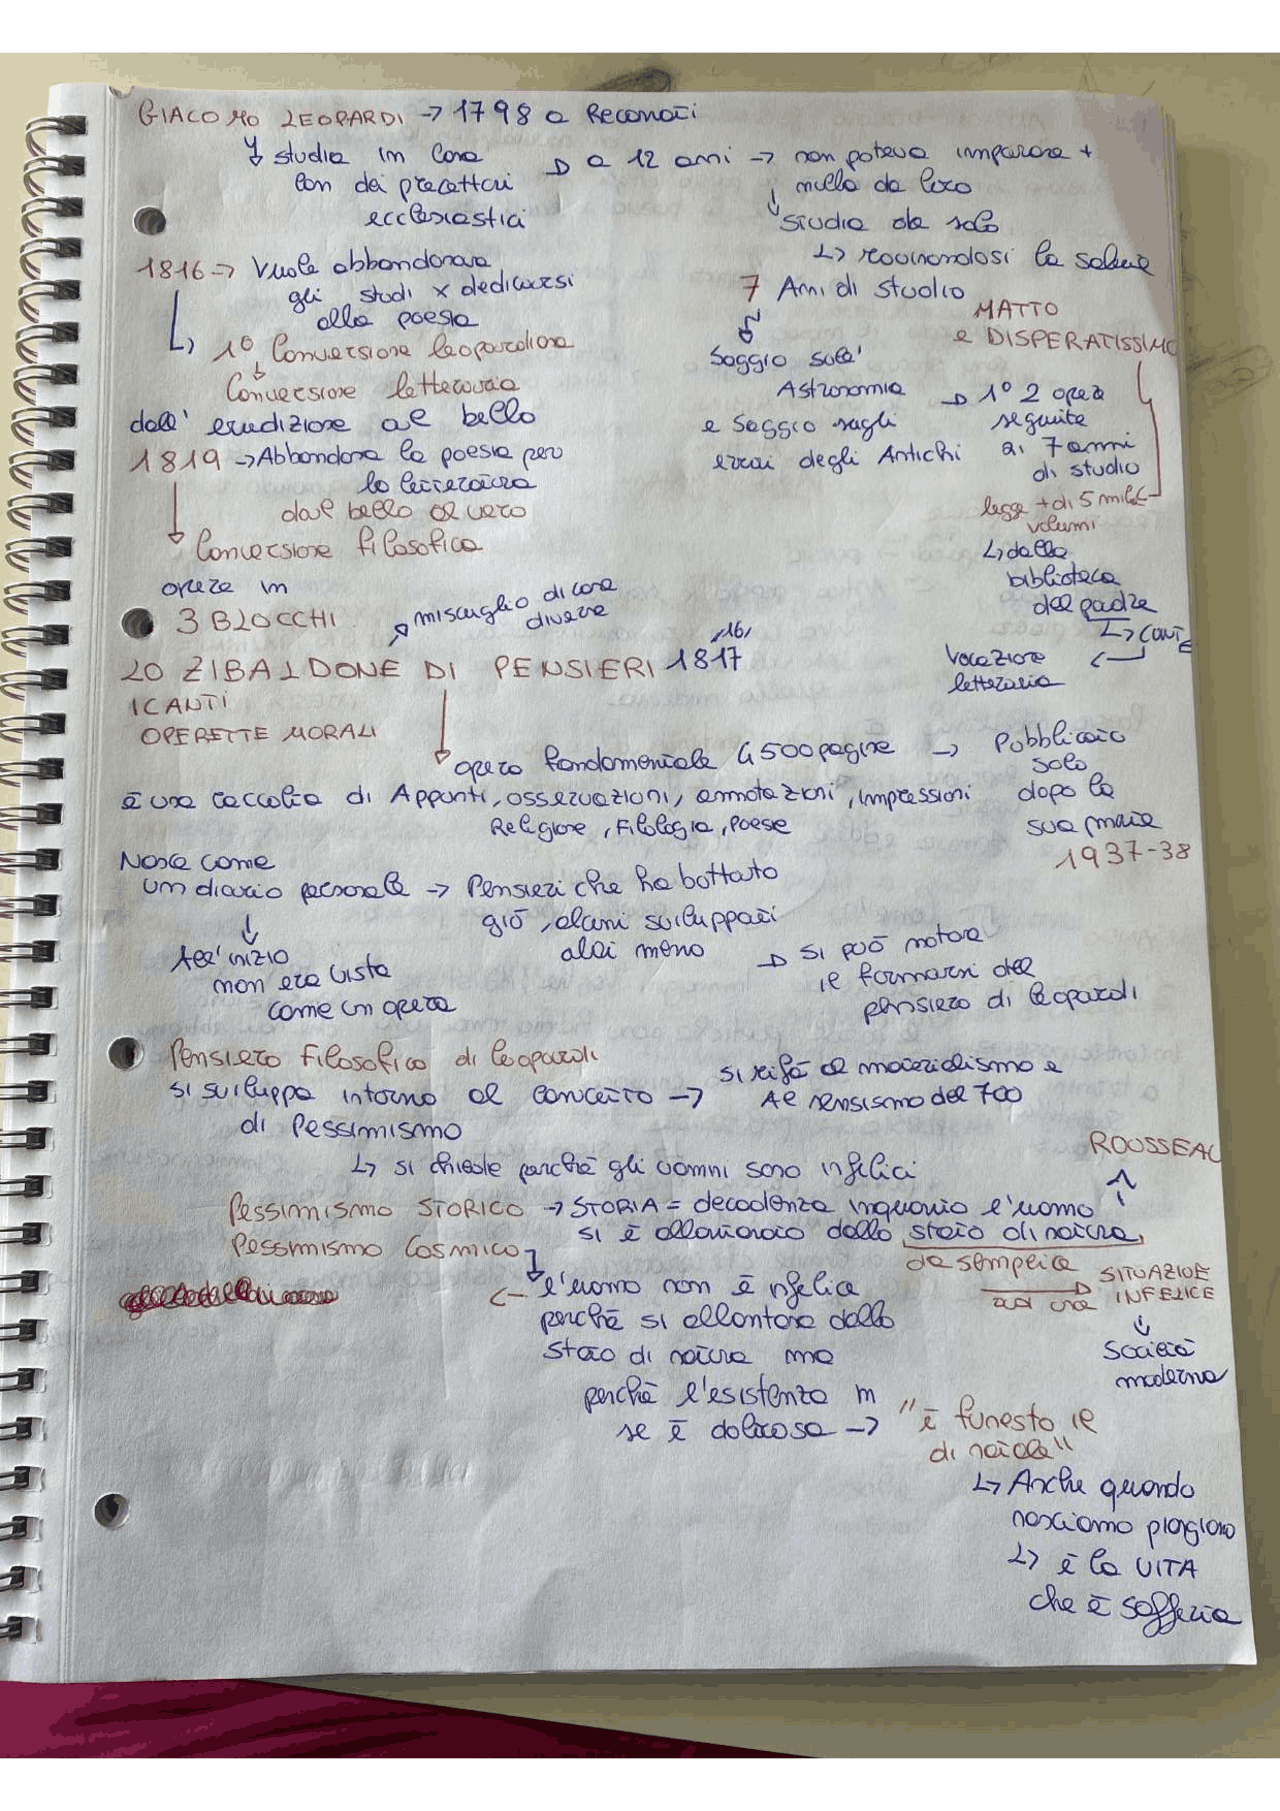 GIACOMO LEOPARDI → 1798 a Recanati
studia in Casa
con dei precettori
ecclesiastici
a 12 anni → non poteva imparare +
nulla da loro
studia da solo
↳ rovinandosi la salute
7 Anni di studio
MATTO
e DISPERATISSIMO
1816 → Vuole abbandonare
gli studi x dedicarsi
alla poesia
↳ 1° Conversione leopardiana
Conversione letteraria
dall' erudizione al bello
Saggio sull'
Astronomia
e Saggio sugli
errori degli Antichi
1° 2 opere
seguite
ai 7 anni
di studio
1819 → Abbandona la poesia per
la letteratura
dal bello al vero
Conversione filosofica
legge + di 5 mila
volumi
↳ dalla
biblioteca
del padre
↳ CONTE
Vocazione
letteraria
opere in
3 BLOCCHI
miscuglio di cose
diverse
LO ZIBALDONE DI PENSIERI 1817
'16/
I CANTI
OPERETTE MORALI
opera fondamentale 4500 pagine → Pubblicato
solo
dopo la
sua morte
1937-38
è una raccolta di Appunti, osservazioni, annotazioni, impressioni
Religione, Filologia, Poesie
Nasce come
un diario personale → Pensieri che ha buttato
giù, alcuni sviluppati
altri meno
All'inizio
non era vista
come un opera
si può notare
il formarsi del
pensiero di leopardi
Pensiero filosofico di leopardi
si sviluppa intorno al concetto →
di Pessimismo
si rifà al materialismo e
Al sensismo del 700
↳ si chiede perchè gli uomini sono infelici
ROUSSEAU
Pessimismo STORICO → STORIA = decadenza inquanto l'uomo
si è allontanato dallo stato di natura,
da semplice
ad una
SITUAZIONE
INFELICE
Società
moderna
Pessimismo Cosmico
← l'uomo non è infelice
perchè si allontana dallo
stato di natura ma
perchè l'esistenza in
se è dolorosa →
"è funesto il
dì natale"
↳ Anche quando
nasciamo piangiamo
↳ è la VITA
che è sofferta